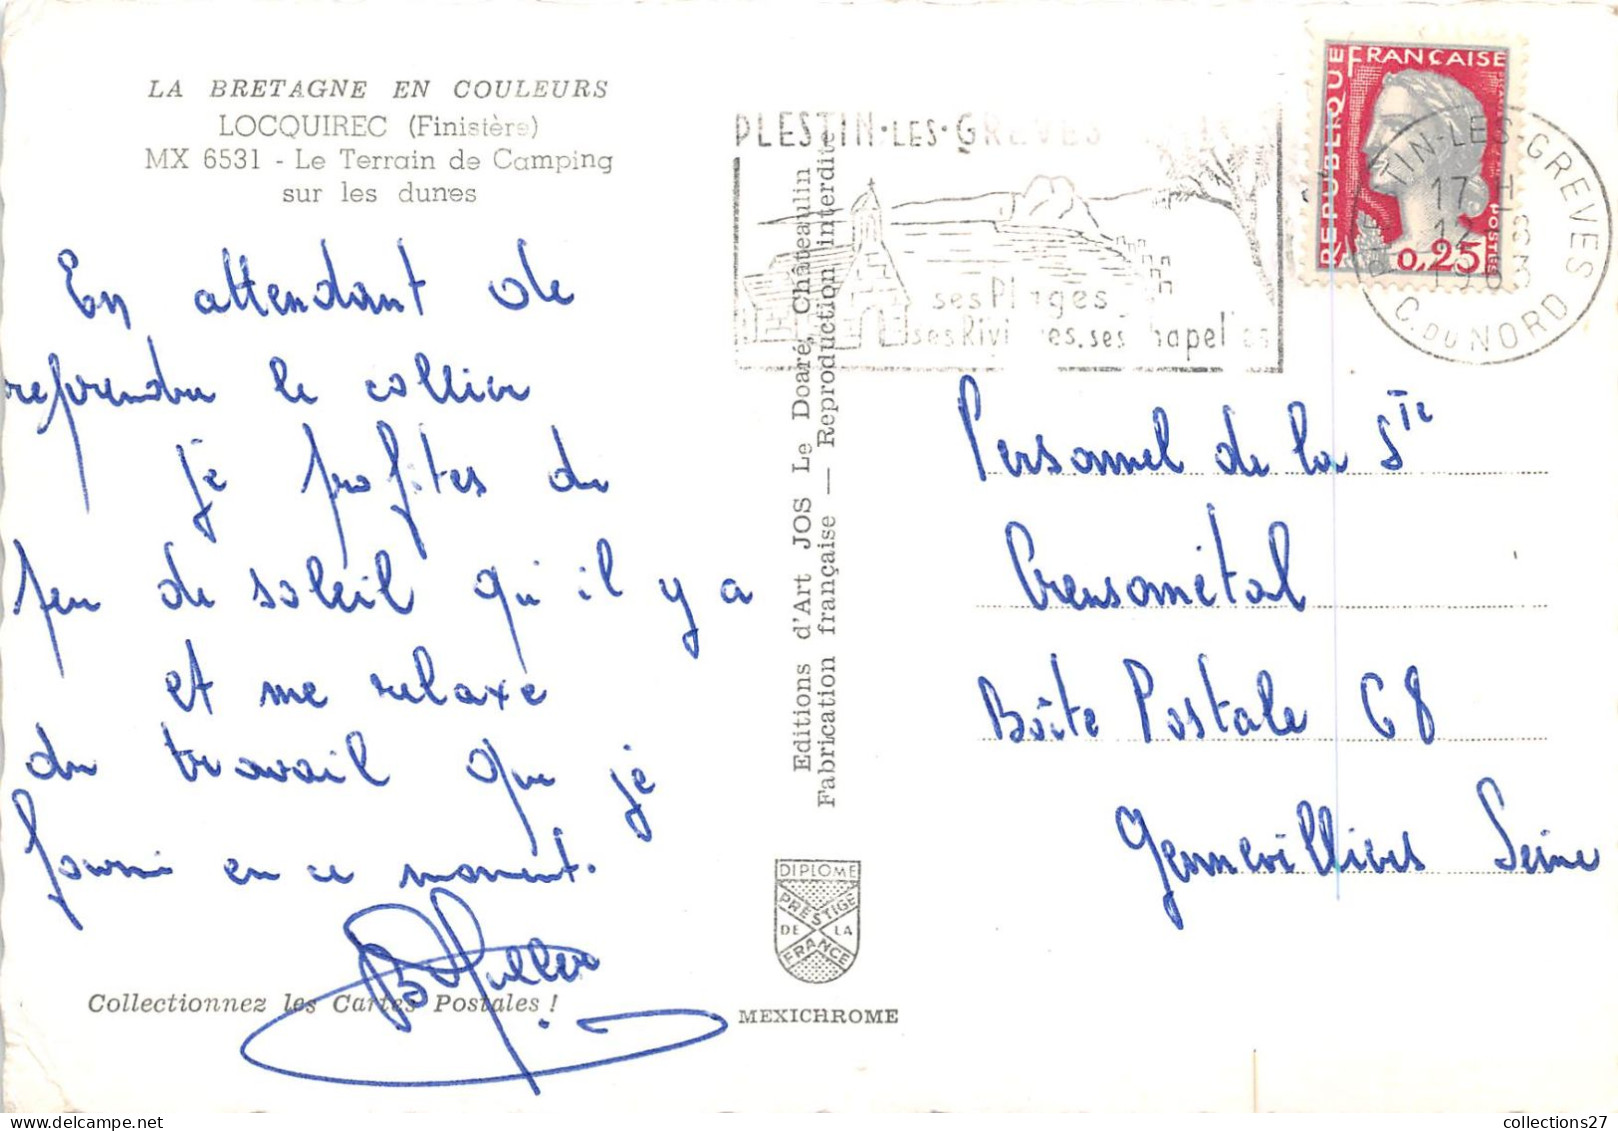 LA BRETAGNE EN COULEURS
LOCQUIREC (Finistère)
MX 6531 - Le Terrain de Camping
sur les dunes
En attendant de
reprendre le collier
je profites du
peu de soleil qu'il y a
et me relaxe
du travail que je
fourni en ce moment.
B Muller
Collectionnez les Cartes Postales !
Editions d'Art JOS Le Doaré, Châteaulin
Fabrication française — Reproduction interdite
DIPLOME
PRESTIGE
DE LA
FRANCE
MEXICHROME
PLESTIN-LES-GREVES
ses Plages
ses Rivières, ses Chapelles
REPUBLIQUE
FRANÇAISE
POSTES
0,25
TIN-LES-GREVES
17 H
12
1963
C. DU NORD
Personnel de la Sté
Creusométal
Boîte Postale 68
Gennevilliers Seine
collections27